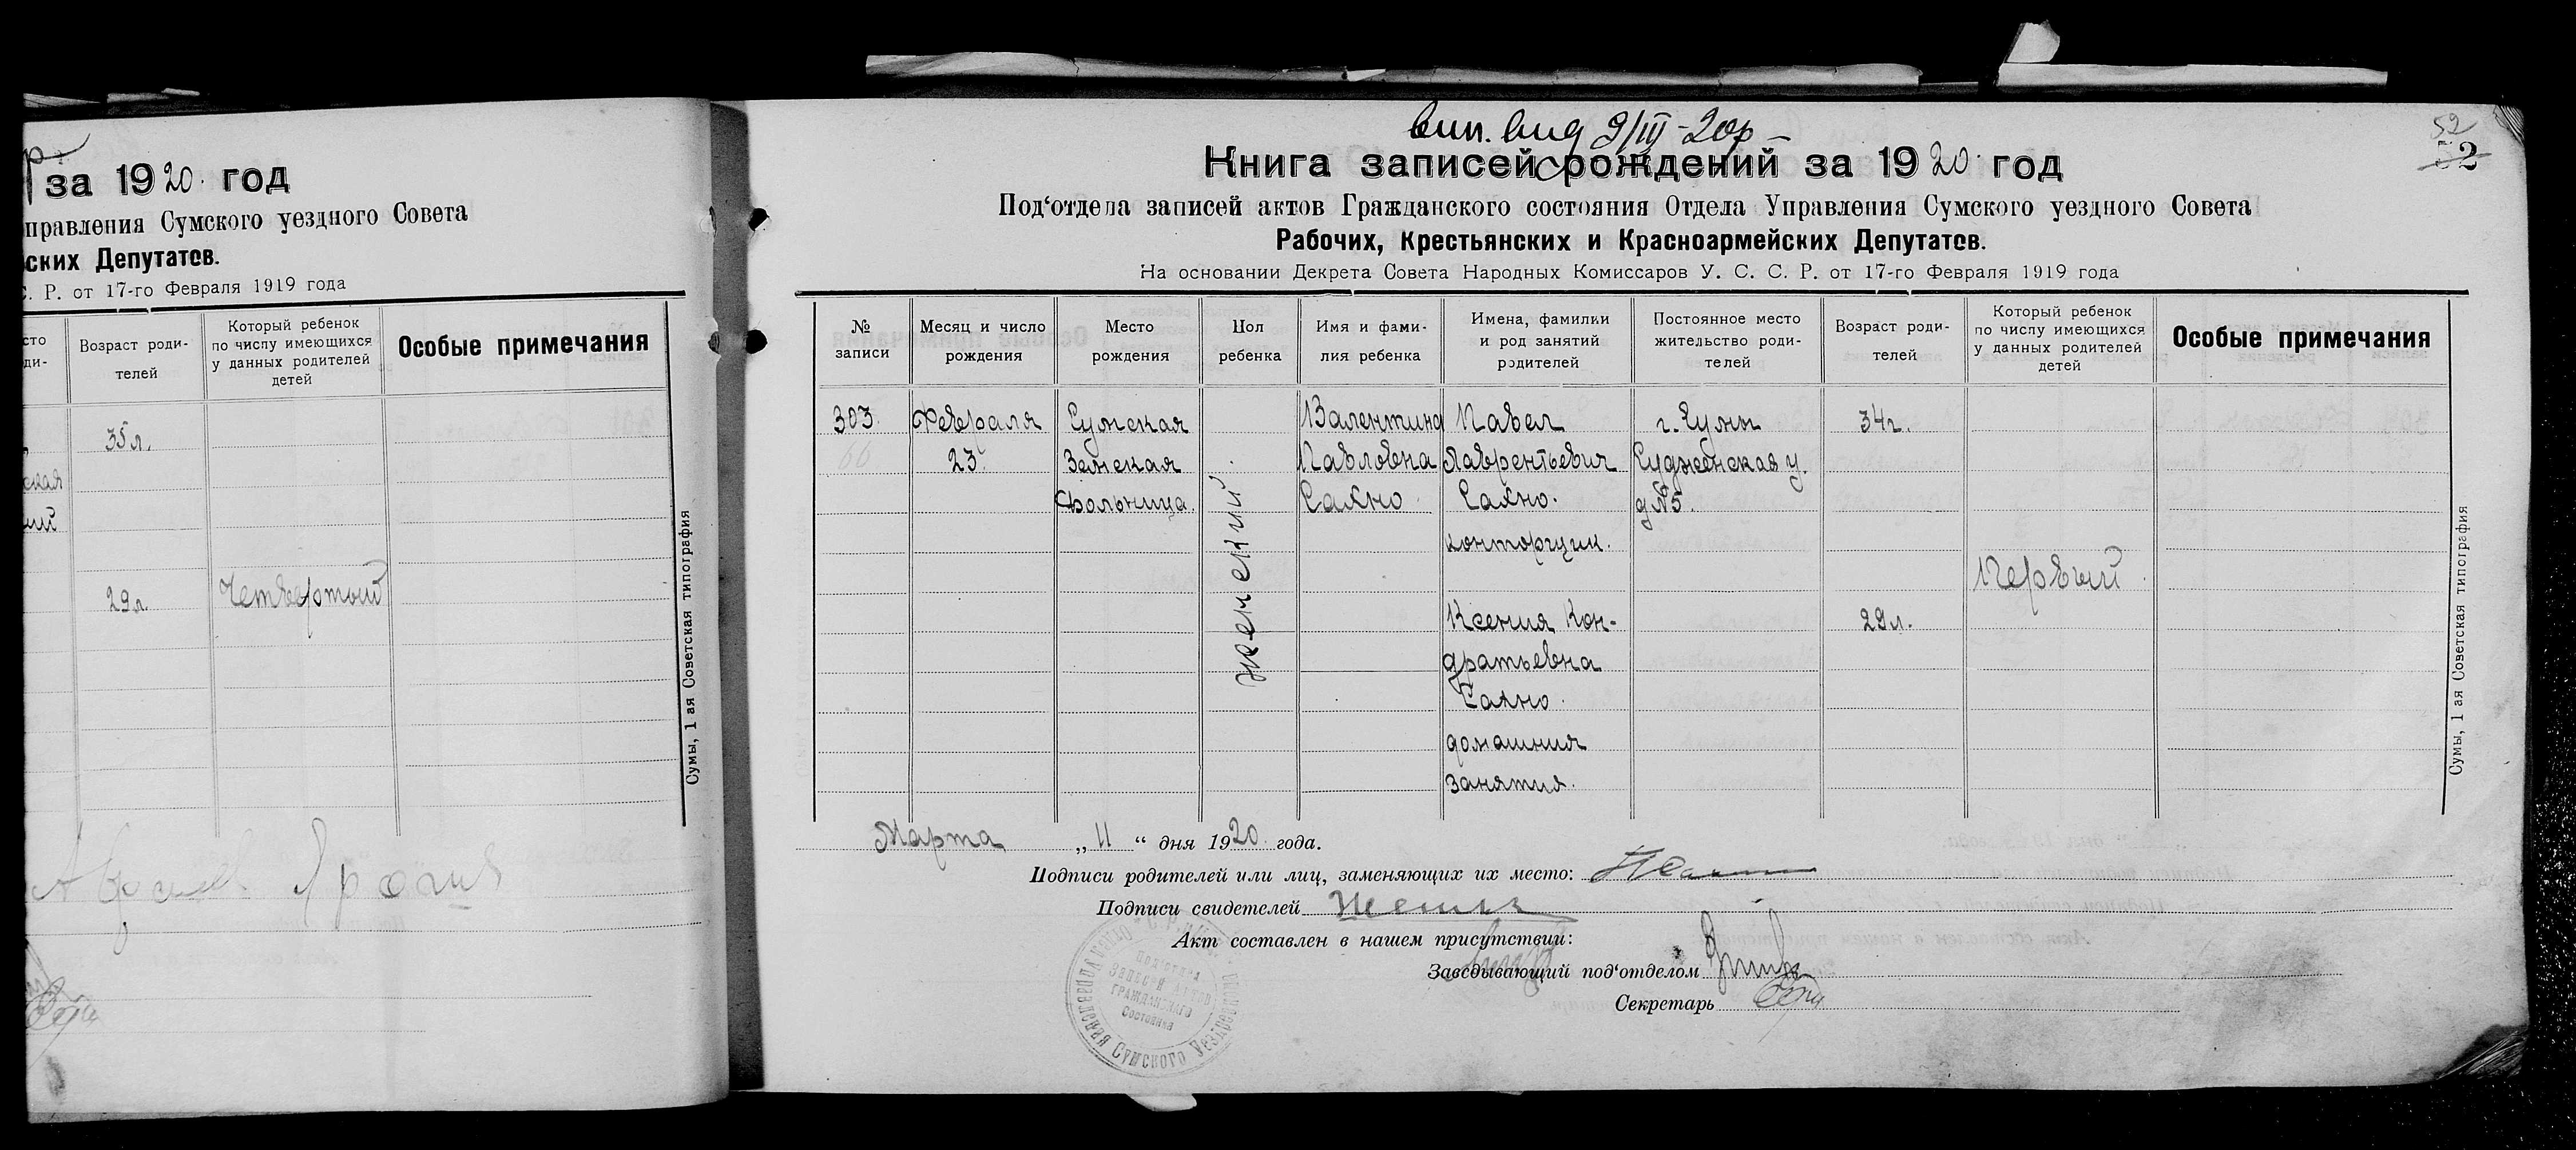 за 1920. год
правления Сумского уездного Совета
ских Депутатов.
С. Р. от 17-го Февраля 1919 года
сто
ди-
Возраст роди-
телей
Который ребенок
по числу имеющихся
у данных родителей
детей
Особые примечания
35 л.
ская
ий
29 л.
Четвертый
Сумы, 1 ая Советская типография
вып. вид 9/III-20 р
52
2
Книга записей рождений за 1920. год
Под‘отдела записей актов Гражданского состояния Отдела Управления Сумского уездного Совета
Рабочих, Крестьянских и Красноармейских Депутатов.
На основании Декрета Совета Народных Комиссаров У. С. С. Р. от 17-го Февраля 1919 года
№
записи
Месяц и число
рождения
Место
рождения
Пол
ребенка
Имя и фами-
лия ребенка
Имена, фамилки
и род занятий
родителей
Постоянное место
жительство роди-
телей
Возраст роди-
телей
Который ребенок
по числу имеющихся
у данных родителей
детей
Особые примечания
303.
66
Февраля
23.
Сумская
Земская
больница.
женский
Валентина
Павловна
Сахно
Павел
Лаврентьевич
Сахно.
конторщик.
Ксения Кон-
дратьевна
Сахно.
домашния
занятия.
г. Сумы
Суджанская у.
д № 5.
34 г.
29 л.
Первый
Сумы, 1 ая Советская типография
Марта „ 11 “ дня 1920. года.
Подписи родителей или лиц, заменяющих их место:
Подписи свидетелей
Акт составлен в нашем присутствии:
Завсдывающий под‘отделом
Секретарь
Под‘отдела
Записи актов
Гражданского
Состояния
Сумского Уездного